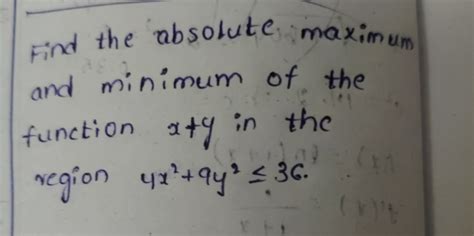 Find the absolute maximum
and minimum of the
function x+y in the
region 4x²+9y² ≤ 36.